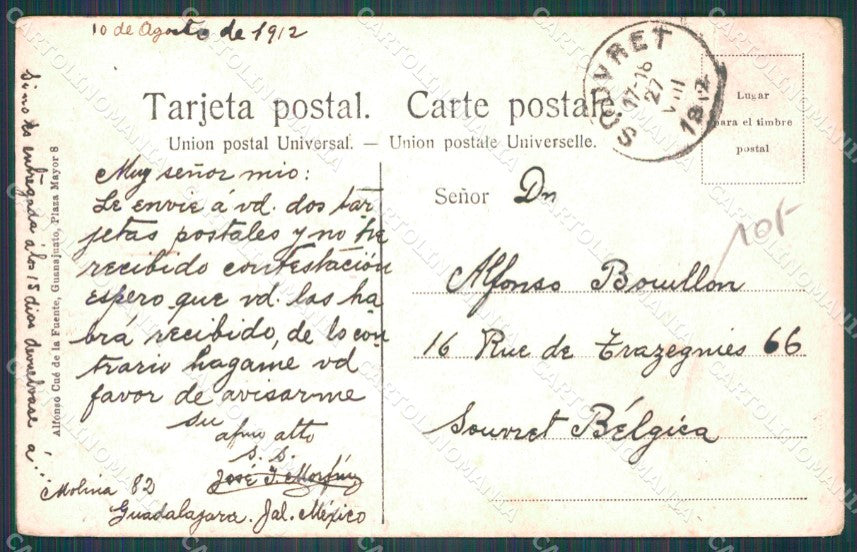 10 de Agosto de 1912
Tarjeta postal. Carte postale.
Union postal Universal. — Union postale Universelle.
SOUVRET
17-18
27
VIII
1912
Lugar
para el timbre
postal
Muy señor mio:
Le envie á vd. dos tar
jetas postales y no he
recibido contestación
espero que vd. las ha
brá recibido, de lo con
trario hagame vd
favor de avisarme
su
afmo atto
s. s.
José I.
Molina 82
Guadalajara. Jal. México
Señor Dn
Alfonso Bouillon
16 Rue de Trazegnies 66
Souvret Bélgica
105
Si no es entregada á los 15 dias devuelvase á...
Alfonso Cué de la Fuente, Guanajuato, Plaza Mayor 8
CARTOLINOMANIA